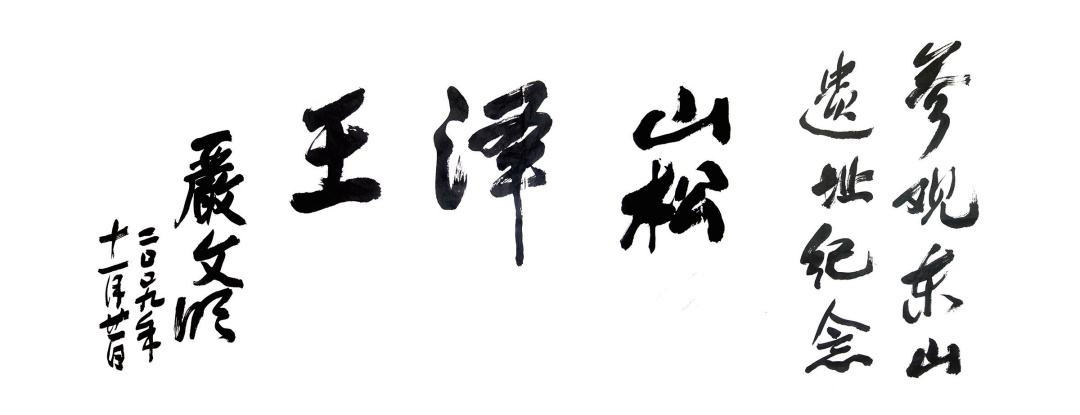 参观东山
遗址纪念
崧澤王
嚴文明
二〇〇九年
十一月廿一日